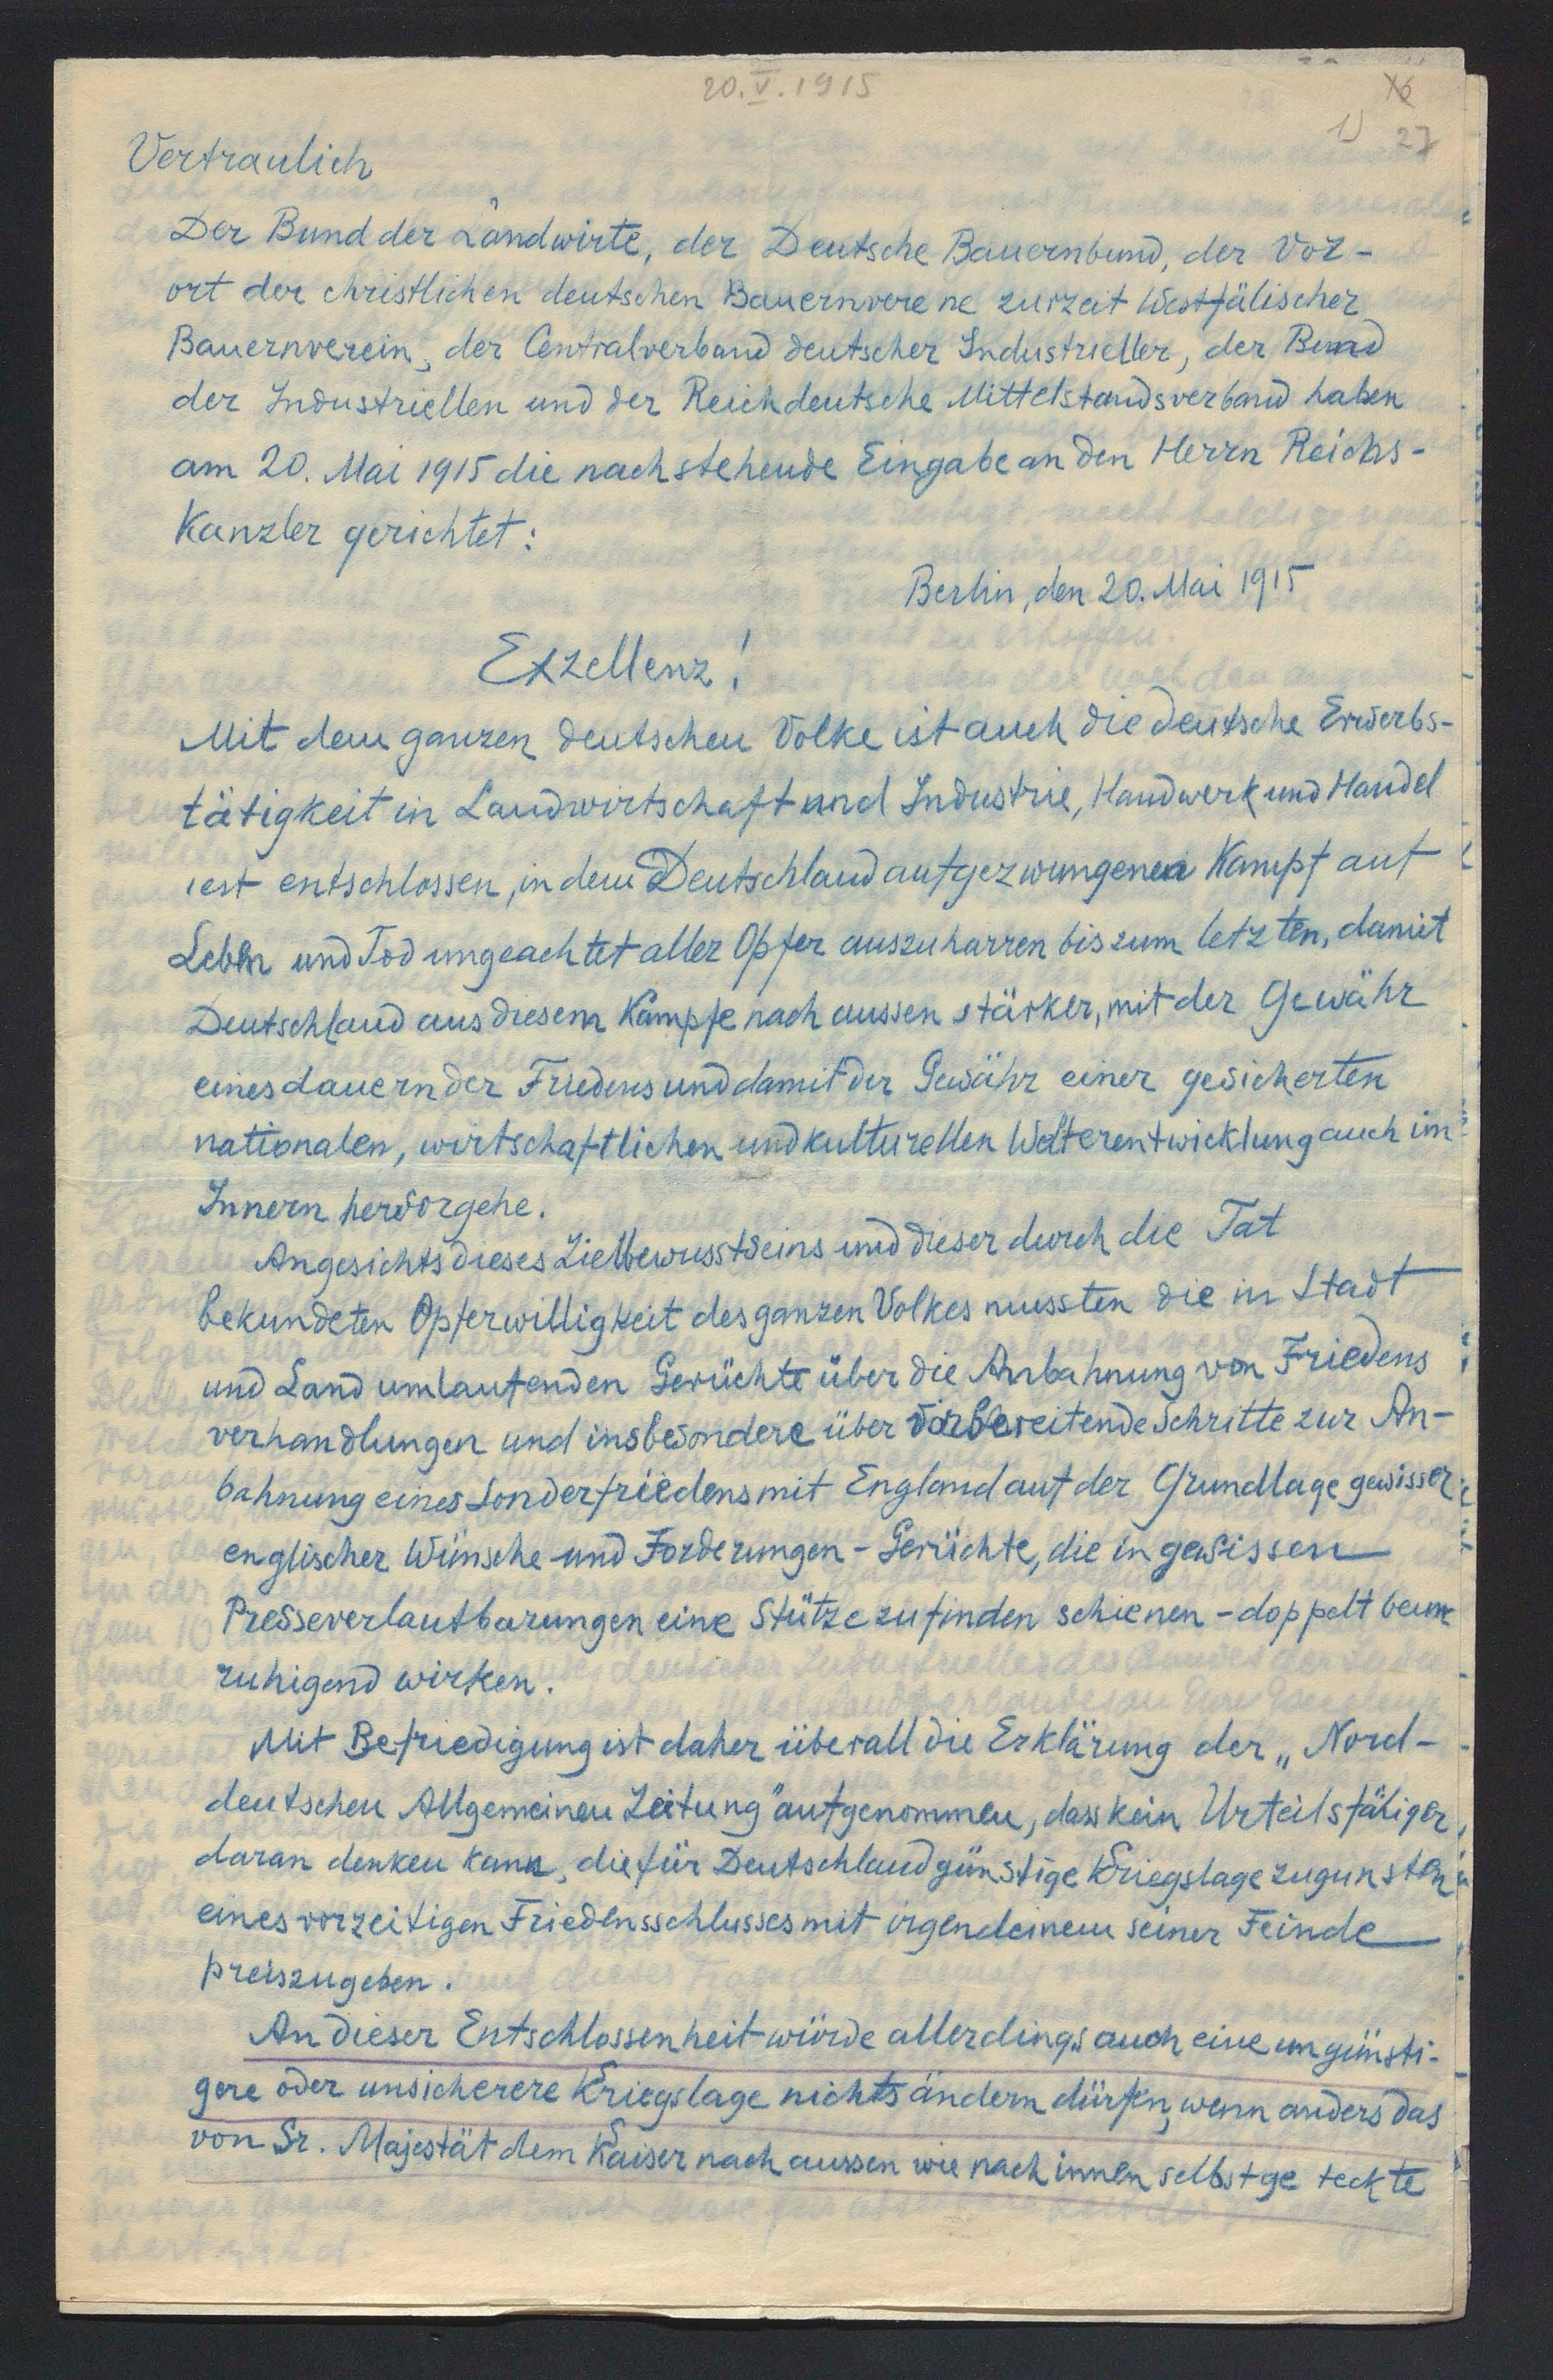 20.V.1915
16
1) 27
Vertraulich
Der Bund der Landwirte, der Deutsche Bauernbund, der Vor-
ort der christlichen deutschen Bauernvereine zurzeit Westfälischer
Bauernverein, der Centralverband deutscher Industrieller, der Bund
der Industriellen und der Reichdeutsche Mittelstandsverband haben
am 20. Mai 1915 die nachstehende Eingabe an den Herrn Reichs-
Kanzler gerichtet:
Berlin, den 20. Mai 1915
Exzellenz!
Mit dem ganzen deutschen Volke ist auch die deutsche Erwerbs-
tätigkeit in Landwirtschaft und Industrie, Handwerk und Handel
fest entschlossen, in dem Deutschland aufgezwungenen Kampf auf
Leben und Tod ungeachtet aller Opfer auszuharren bis zum letzten, damit
Deutschland aus diesem Kampfe nach aussen stärker, mit der Gewähr
eines dauernder Friedens und damit der Gewähr einer gesicherten
nationalen, wirtschaftlichen und kulturellen Weiterentwicklung auch im
Innern hervorgehe.
Angesichts dieses Zielbewusstseins und dieser durch die Tat
bekundeten Opferwilligkeit des ganzen Volkes mussten die in Stadt
und Land umlaufenden Gerüchte über die Anbahnung von Friedens
verhandlungen und insbesondere über vorbereitende Schritte zur An-
bahnung eines Sonderfriedens mit England auf der Grundlage gewisser
englischer Wünsche und Forderungen - Gerüchte, die in gewissen
Presseverlautbarungen eine Stütze zu finden schienen - doppelt beun
ruhigend wirken.
Mit Befriedigung ist daher überall die Erklärung der „Nord-
deutschen Allgemeinen Zeitung" aufgenommen, dass kein Urteilsfähiger
daran denken kann, die für Deutschland günstige Kriegslage zugunsten
eines vorzeitigen Friedensschlusses mit irgendeinem seiner Feinde
preiszugeben.
An dieser Entschlossenheit würde allerdings auch eine ungünsti-
gere oder unsicherere Kriegslage nichts ändern dürfen, wenn anders das
von Sr. Majestät dem Kaiser nach aussen wie nach innen selbst ge teckte